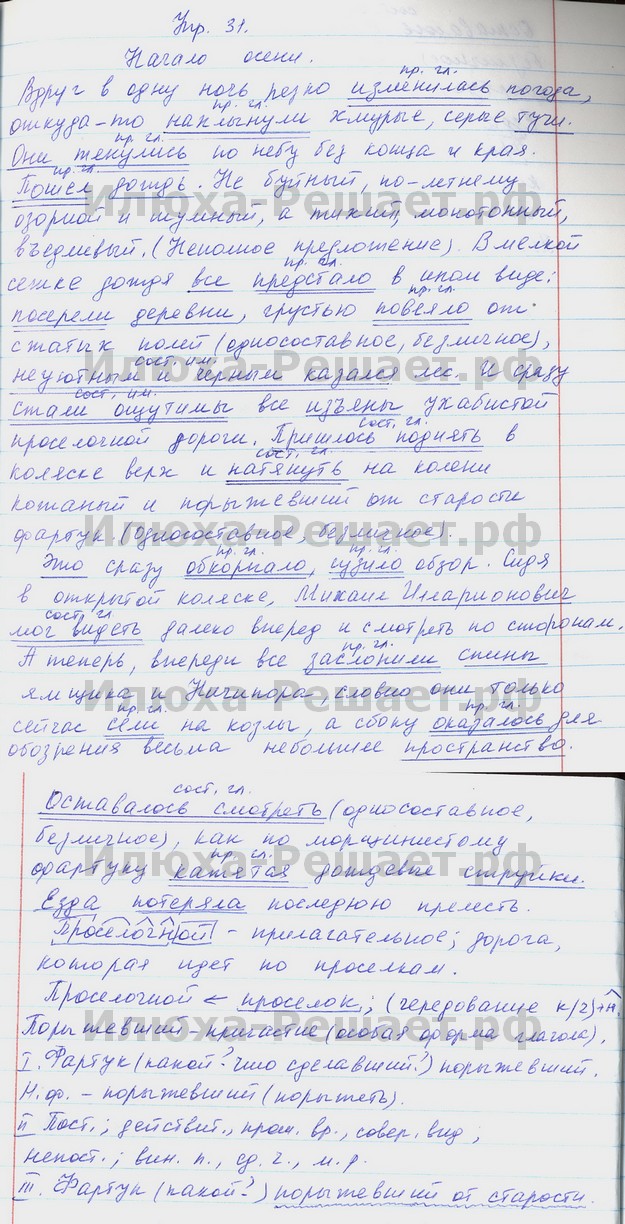 Упр. 31.
Начало осени.
пр. гл.
Вдруг в одну ночь резко изменилась погода,
пр. гл.
откуда-то нахлынули хмурые, серые тучи.
пр. гл.
Они тянулись по небу без конца и края.
пр. гл.
Пошел дождь. Не буйный, по-летнему
Илюха-Решает.рф
озорной и шумный, а тихий, монотонный,
въедливый. (Неполное предложение). В мелкой
пр. гл.
сетке дождя все предстало в ином виде:
пр. гл.
посерели деревни, грустью повеяло от
сжатых полей (односоставное, безличное),
Илюха-Решает.рф
сост. им.
неуютным и черным казался лес. И сразу
сост. им.
стали ощутимы все изъяны ухабистой
сост. гл.
проселочной дороги. Пришлось поднять в
сост. гл.
коляске верх и натянуть на колени
кожаный и порыжевший от старости
Илюха-Решает.рф
фартук. (Односоставное, безличное).
пр. гл. пр. гл.
Это сразу обкорнало, сузило обзор. Сидя
в открытой коляске, Михаил Илларионович
сост. гл.
мог видеть далеко вперед и смотреть по сторонам.
пр. гл.
А теперь, впереди все заслонили спины
Илюха-Решает.рф
ямщика и Ничипора, словно они только
пр. гл. пр. гл.
сейчас сели на козлы, а сбоку оказалось для
обозрения весьма небольшее пространство.
сост. гл.
Оставалось смотреть (односоставное,
безличное), как по морщинистому
Илюха-Решает.рф
пр. гл.
фартуку катятся дождевые струйки.
Езда потеряла последнюю прелесть.
Проселочной - прилагательное; дорога,
которая идет по проселкам.
Проселочной ← проселок; (чередование к/ч)+н.
Илюха-Решает.рф
Порыжевший - причастие (особая форма глагола).
I. Фартук (какой? что сделавший?) порыжевший.
Н.ф. - порыжевший (порыжеть).
II Пост.; действит., прош. вр., совер. вид;
непост.; вин. п., ед. ч., м. р.
Илюха-Решает.рф
III. Фартук (какой?) порыжевший от старости.